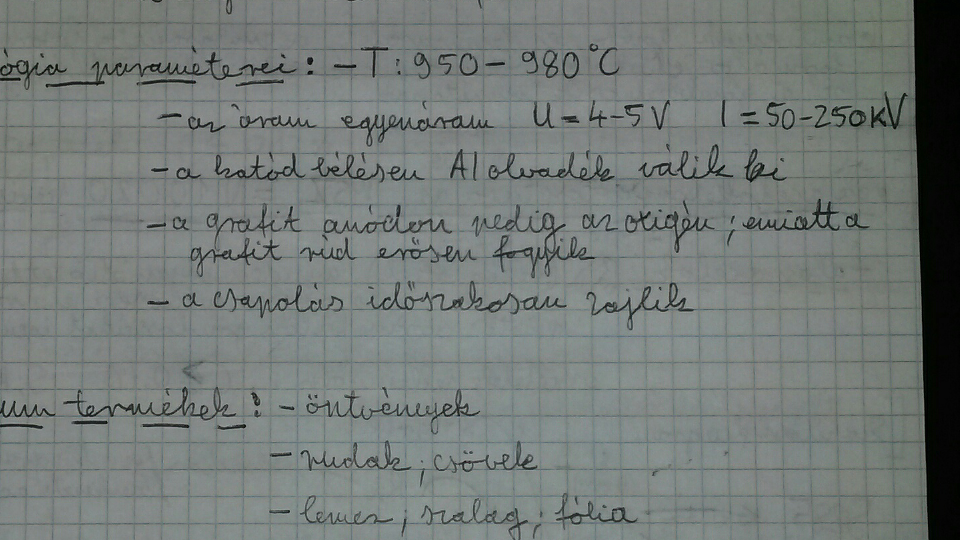 ógia paraméterei: - T: 950 - 980 °C
- az áram egyenáram U = 4-5 V I = 50-250 kV
- a katód bélésen Al olvadék válik ki
- a grafit anódon pedig az oxigén; emiatt a
grafit rúd erősen fogyik
- a csapolás időszakosan zajlik
um termékek: - öntvények
- rudak; csövek
- lemez; szalag; fólia